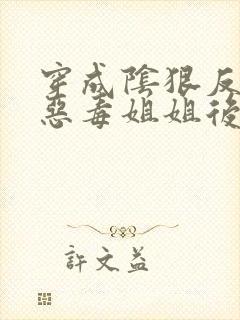 穿成陰狠反
惡毒姐姐後
許文益